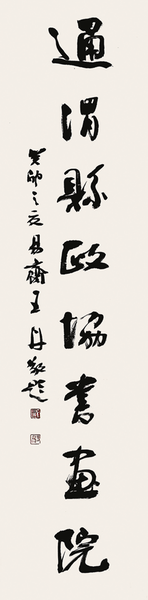 通渭縣政協書畫院
癸卯之夏易齋王丹敬題